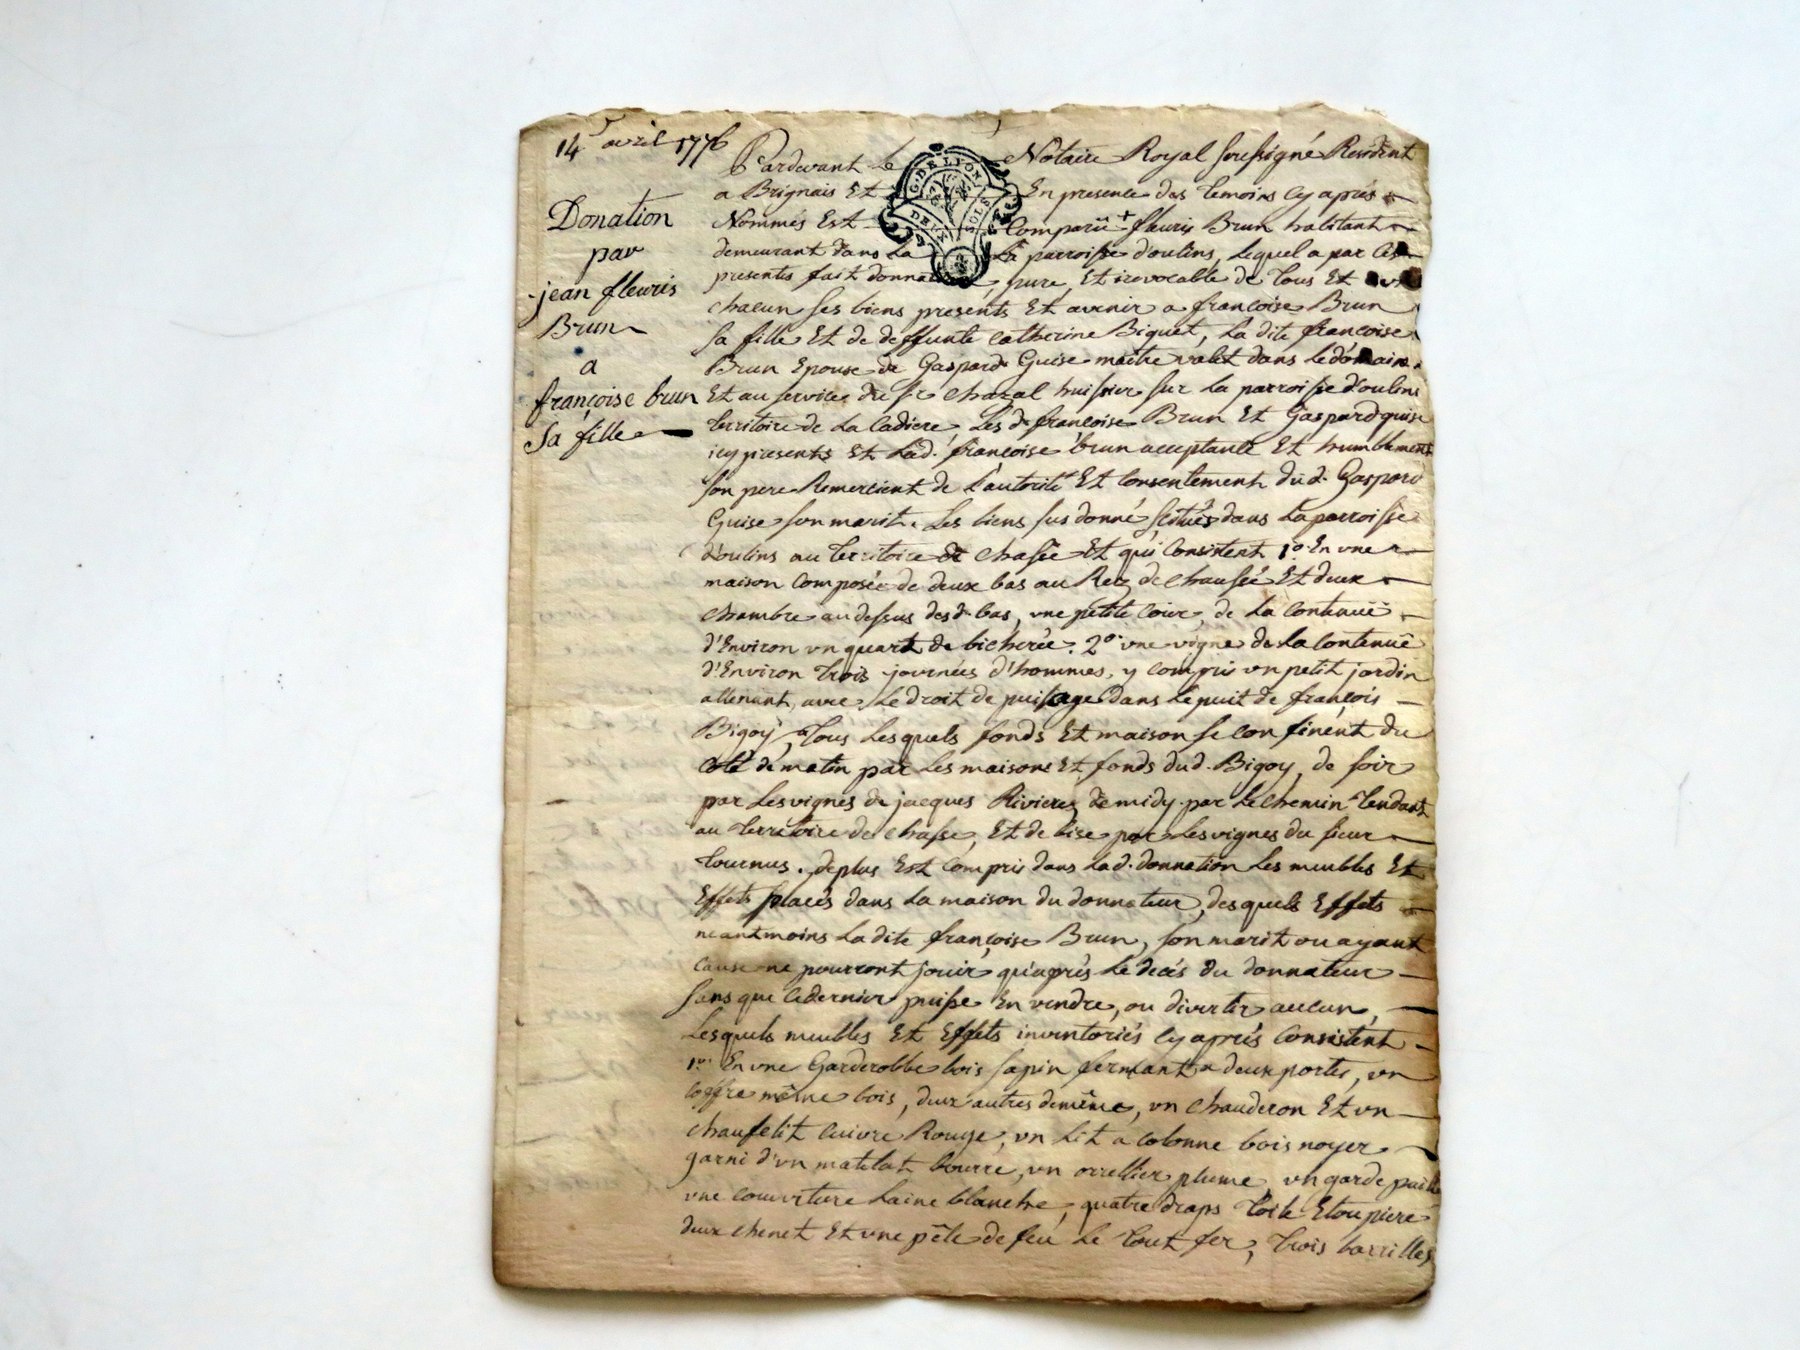 14 avril 1776
Donation
par
jean fleuris
Brun
a
françoise brun
sa fille
G. DE LYON
DEUX SOLS
Pardevant Le Notaire Royal soussigné Resident
a Brignais Et En presence des temoins cy aprés
Nommés Est Comparü + fleuris Brun habitant
demeurant dans La La parroisse d'oulins, Lequel a par Ces
presentes fait donnation pure, Et irevocable de tous Et
chacun ses biens presents Et avenir a françoise Brun
sa fille Et de deffunte catherine Biguet, La dite françoise
Brun Epouse de Gaspard Guise maitre valet dans Le domaine
Et au service du sr chazal huissier sur La parroisse d'oulins
territoire de La Cadiere, Les d. françoise Brun Et Gaspard guise
icy presents Et Lad. françoise brun acceptante Et humblement
son pere Remercient de L'autorité Et Consentement dud. Gaspard
Guise son marit. Les biens sus donné scitués dans La parroisse
d'oulins au territoire de chasse Et qui Consistent 1° En une
maison Composée de deux bas au Rez de chaussée Et deux
chambre au dessus desd. bas, une petite Cour, de La Contenuë
d'Environ un quart de bicherée. 2° une vigne de La Contenuë
d'Environ trois journées d'hommes, y compris un petit jardin
attenant, avec Le droit de puisage dans Le puit de françois
Bigoy, tous Lesquels fonds Et maison se confinent du
coté de matin par Les maisons Et fonds dud. Bigoy, de soir
par Les vignes de jacques Riviere, de midy par Le chemin tendant
au territoire de chasse, Et de bise par Les vignes du sieur
tournus. de plus Est Compris dans Lad. donnation Les meubles Et
Effets placés dans La maison du donnateur, desquels Effets
neantmoins La dite françoise Brun, son marit ou ayant
cause ne pourront jouir qu'aprés Le decés du donnateur
sans que Cedernier puisse En vendre, ou divertir aucun,
Lesquels meubles Et Effets inventoriés Cy aprés Consistent
1° En une Garderobbe bois sapin fermant a deux portes, un
coffre même bois, deux autres de même, un chauderon Et un
chaufelit Cuivre Rouge, un Lit a colonne bois noyer
garni d'un matelat bourre, un orrellier plume un garde paille
une couverture Laine blanche, quatre draps toile Etoupiere
deux chenet Et une pêle de feu Le tout fer, trois barrilles